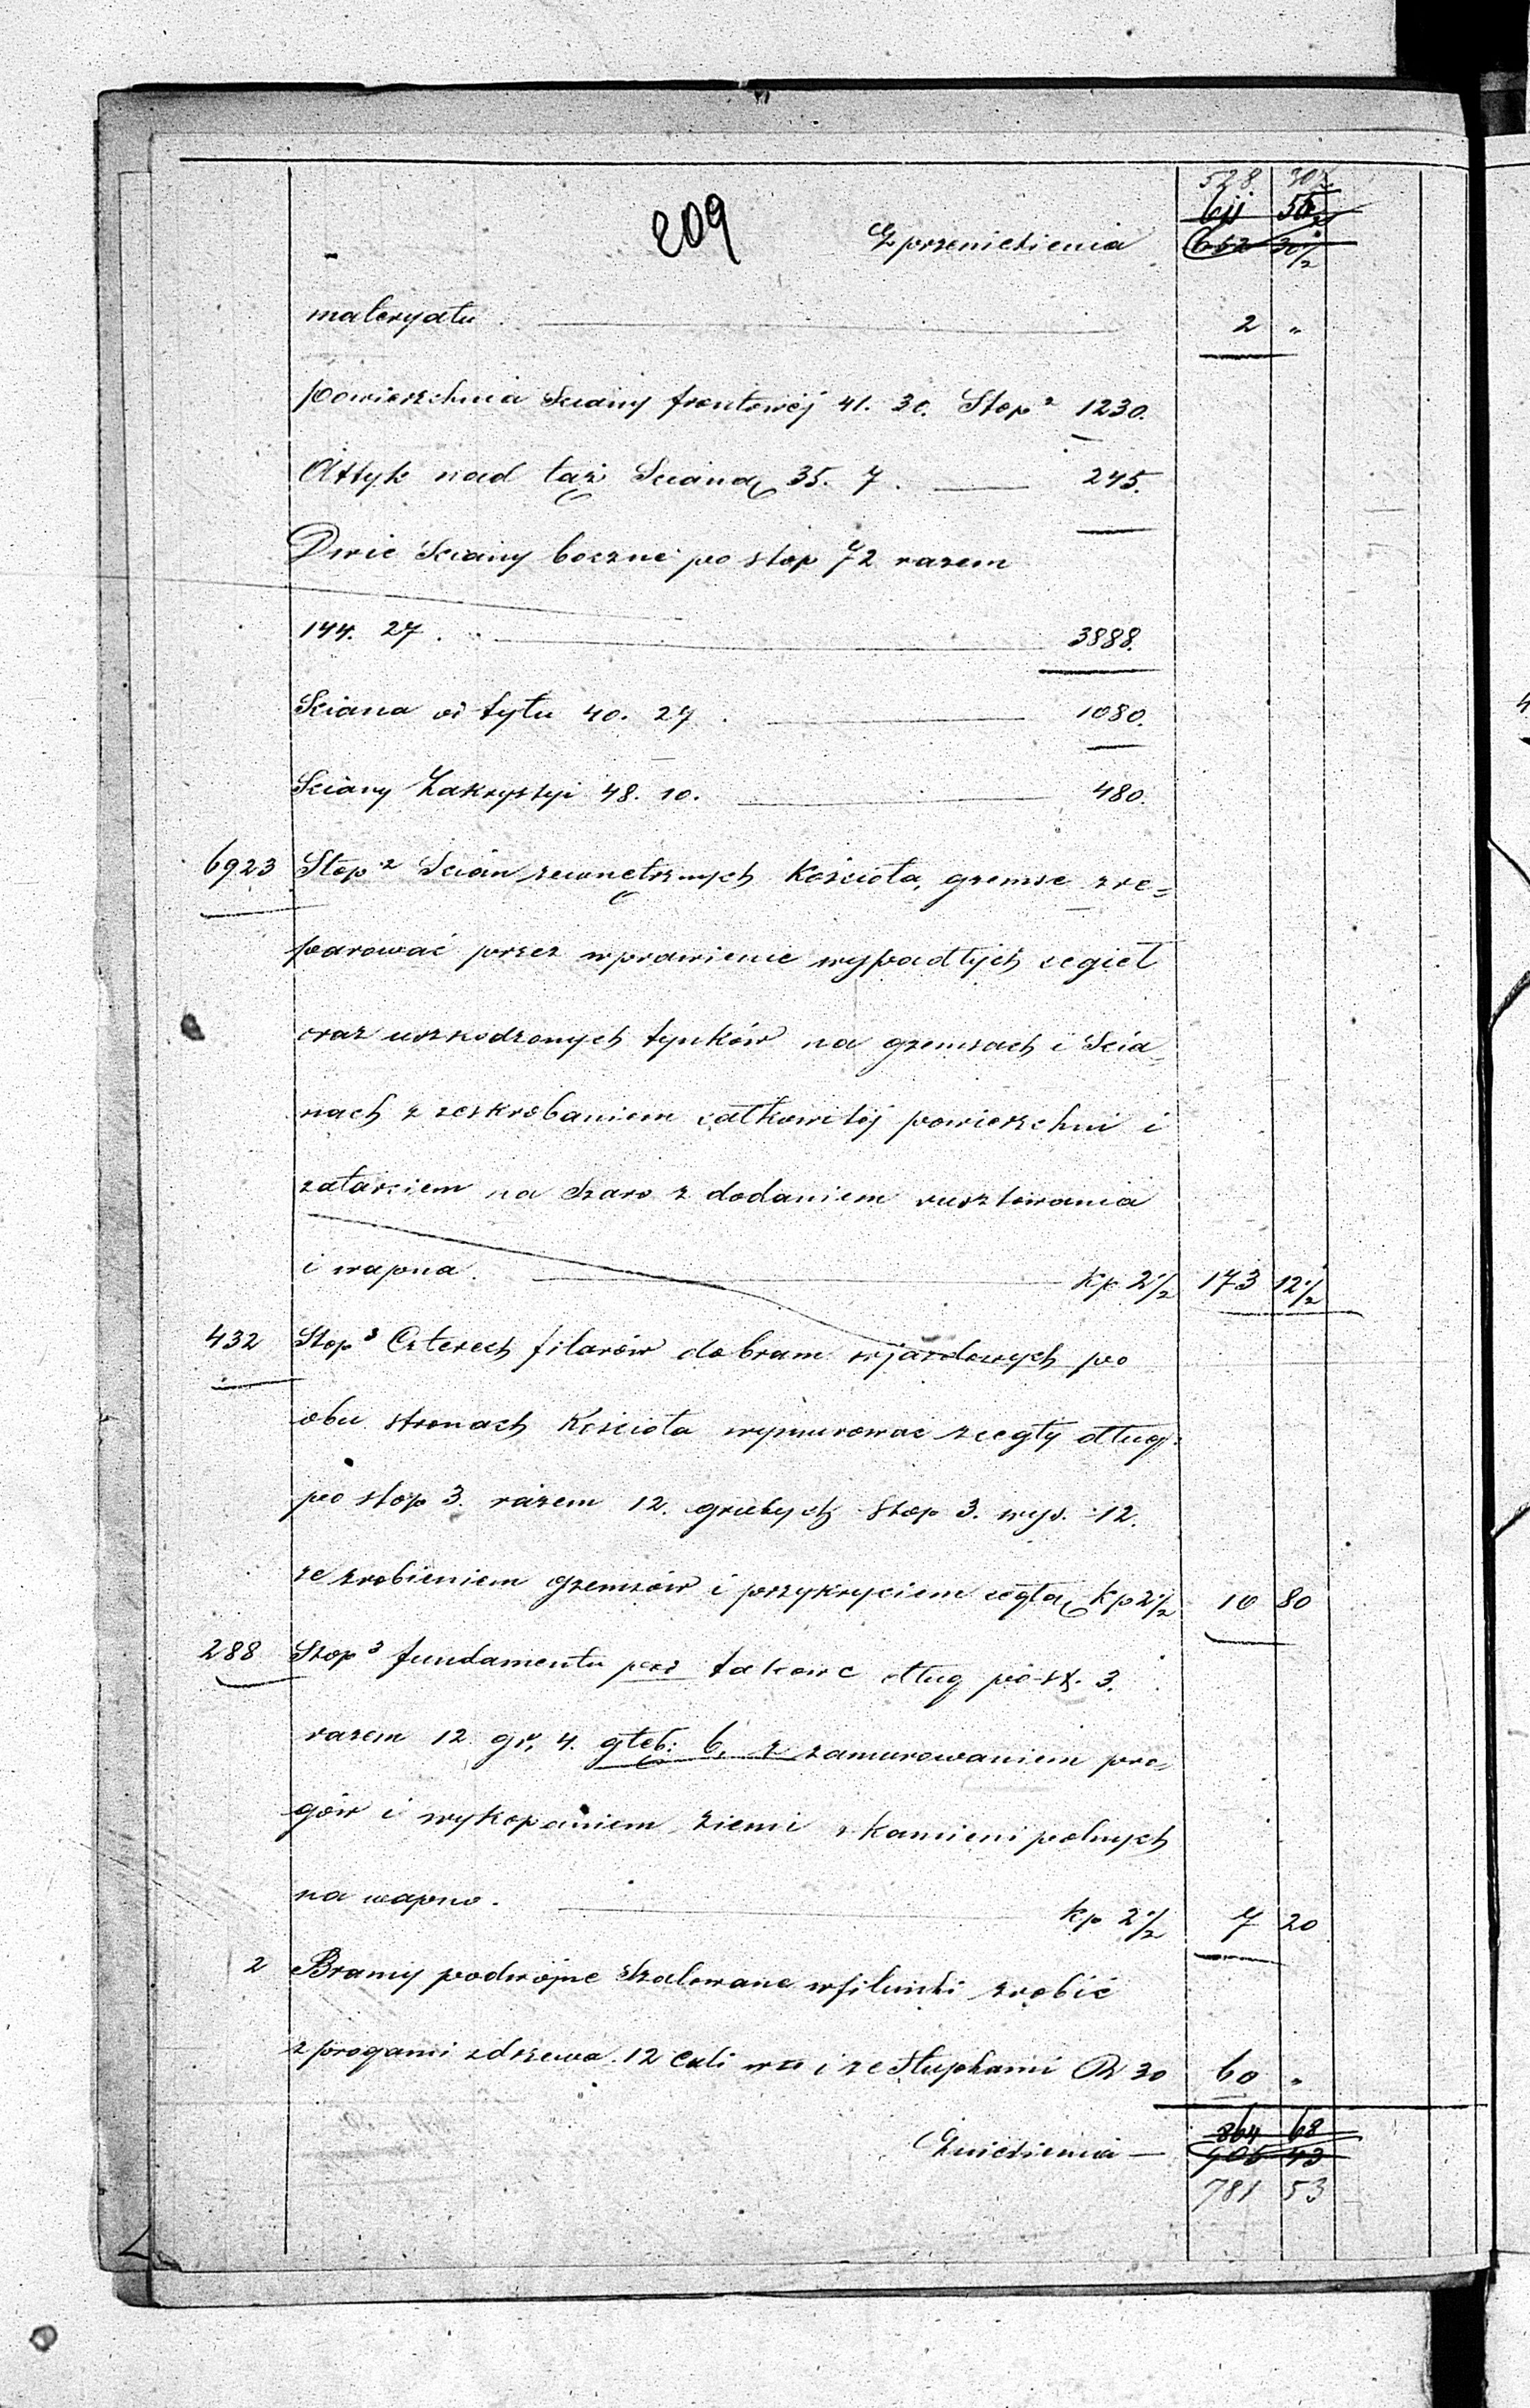 528 30½
209
611 55½
Z przeniesienia 652 30½
materyału. 2 „
powierzchnia Sciany frontowéj 41. 30. Stop² 1230.
Attyk nad tąż Scianą 35. 7. 245.
Dwie Sciany boczne po stop 72 razem
144. 27. 3888.
Sciana od tyłu 40. 27. 1080.
Sciany Zakrystyi 48. 10. 480.
6923 Stop² Scian zewnętrznych Kościoła, gzemse zre=
parować przez wprawienie wypadłych cegieł
oraz uszkodzonych tynków na gzemsach i Scia=
nach z zeskrobaniem całkowitéj powierzchni i
zatarciem na szaro z dodaniem rusztowania
i wapna. kp 2½ 173 12½
432 Stop³ Czterech filarów do bram wjazdowych po
obu stronach Kościoła wymurować z cegły długː
po stop 3. razem 12. grubych stop 3. wys. 12.
ze zrobieniem gzemsów i przykryciem cegłą kp 2½ 10 80
288 Stop³ fundamentu pod takowe dług po st. 3.
razem 12 gr. 4. głęb: 6, z zamurowaniem pro=
gów i wykopaniem ziemi z kamieni polnych
na wapno. kp 2½ 7 20
2 Bramy podwójne szalowane w filunki zrobić
z progami z drzewa 12 cali i ze słupkami R 30 60 „
864 68
Zniesienia — 905 43
781 53